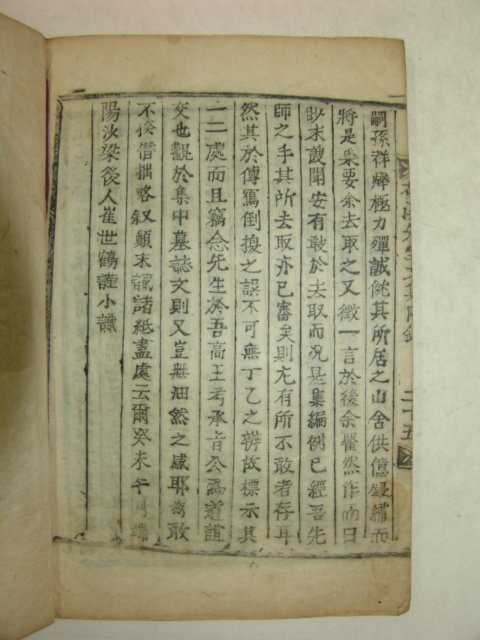 嗣孫祥燁極力殫誠就其所居之山舍供億鋟繡而
將是橐要余去取之又徵一言於後余瞿然作而曰
眇末謏聞安有敢於去取而况是集編例已經吾先
師之手其所去取亦已審矣則尤有所不敢者存耳
然其於傳寫倒換之誤不可無丁乙之辨故標示其
一二處而且竊念先生於吾高王考承旨公爲道誼
交也觀於集中墓誌文則又豈無油然之感耶茲敢
不揆僣拙略叙顚末識諸紙盡處云爾癸未午月端
陽汝梁後人崔世鶴謹小識
二十五